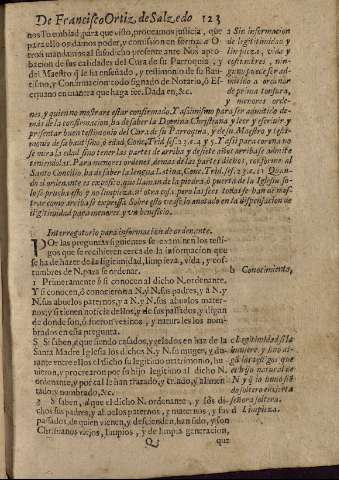 De Francisco Ortiz, de Salzedo 123
nos Tomblad para que visto, proveamos justicia, que
para ello os damos poder, y comission en forma: a O-
tros mandavamos al susodicho presente ante Nos apro-
bacion de sus calidades del Cura de su Parroquia, y
del Maestro q̃ le ha enseñado, y testimonio de su Bau-
tismo, y Confirmacion todo signado de Notario, ò Es-
crivano en manera que haga fee. Dada en, &c.
a Sin informacion
de legitimidad y
limpieza, vida y
costumbres, nin-
guno puede ser ad-
mitido a orden
de prima tonsura,
y menores orde-
nes, y quien no mostrare estar confirmado. Y asimismo para ser admitido de-
mas de la confirmacion, ha de saber la Doctrina Christiana y leer y escrivir, y
presentar buen testimonio del Cura de su Parroquia, y de su Maestro y testi-
monio de su bautismo, ò edad, Conc. Trid. ses. 23. c. 4. y 5. Y assi para corona no
se mira la edad sino tener las partes de arriba
teniendolas. Para menores ordenes, demas de las partes dichas, conforme al
Santo Concilio, ha de saber la lengua Latina, Conc. Trid. ses. 23. c. 11 Quan-
do el ordenante es exposito, que llaman de la piedra, ò puerta de la Iglesia so-
lo se prueba esto
trar como arriba se expressa Sobre esto vease lo anotado en la dispensacion de
ilegitimidad para menores, y un beneficio.
Interrogatorio para informacion de ordenante.
POr las preguntas siguientes se examinen los testi-
gos que se recibieren cerca de la informacion que
se ha de hazer de la legitimidad, limpieza, vida, y cos-
tumbres de N. para se ordenar.
1 Primeramente b si conocen al dicho N. ordenante,
Y si conocen, ò conocieron a N. y N. sus padres, y a N. y
N. sus abuelos paternos, y a N. y N. sus abuelos mater-
nos; y si tienen noticia dellos, y de sus passados, y digan
de donde son, ò fueron vezinos, y naturales los nom-
brados en esta pregunta.
b Conocimiento,
2 Si saben, c que siendo casados, y velados en haz de la
Santa Madre Iglesia los dichos N. y N. su muger, y du-
rante entre ellos el dicho su legitimo matrimonio, hu-
vieron, y procrearon por su hijo legitimo al dicho N.
ordenante, y por tal le han tratado, y criado, y alimen-
tado, y nombrado, &c.
c Legitimidad si la
tuviere
el hijo natural de
N. y q̃ lo huvo siẽ-
do soltero en
señora soltera.
3 Si saben, d que el dicho N. ordenante, y los di-
chos sus padres, y abuelos paternos, y maternos, y sus
passados, de quien vienen, y descienden, han sido, y son
Christianos viejos, limpios, y de limpia generacion,
d Limpieza.
Q que